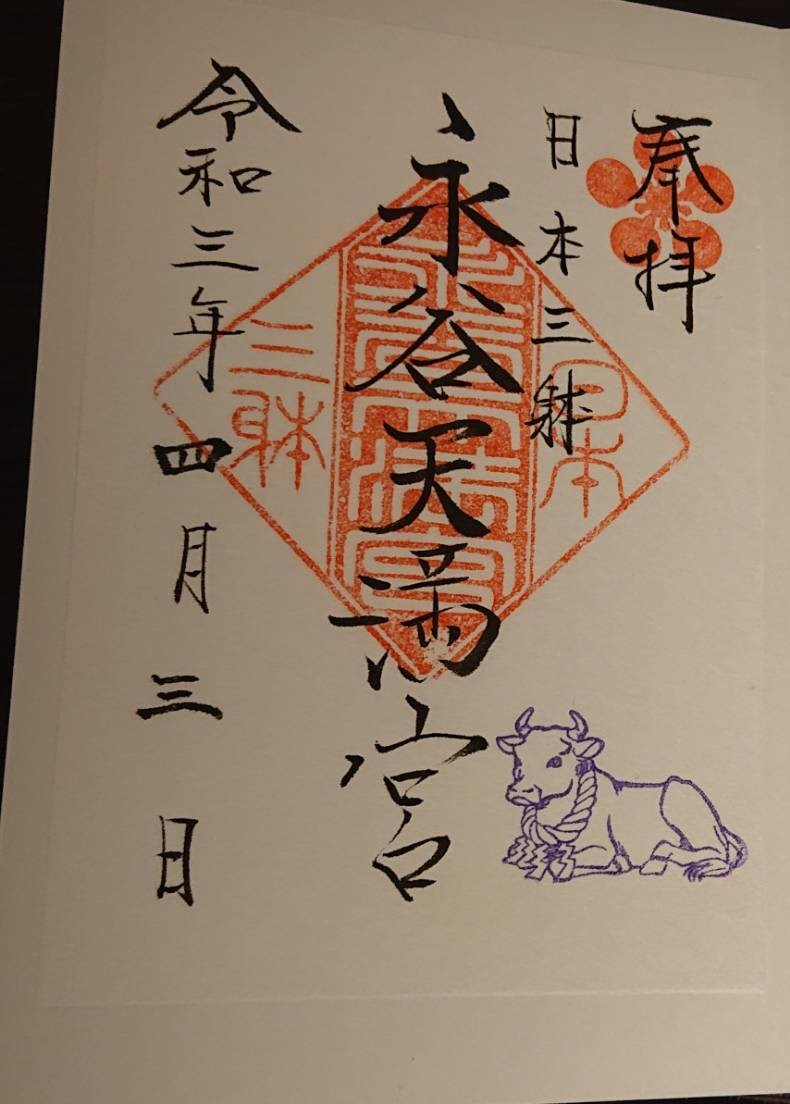 奉拝
日本三躰
永谷天満宮
令和三年四月三日
日本
永谷天満宮
三躰